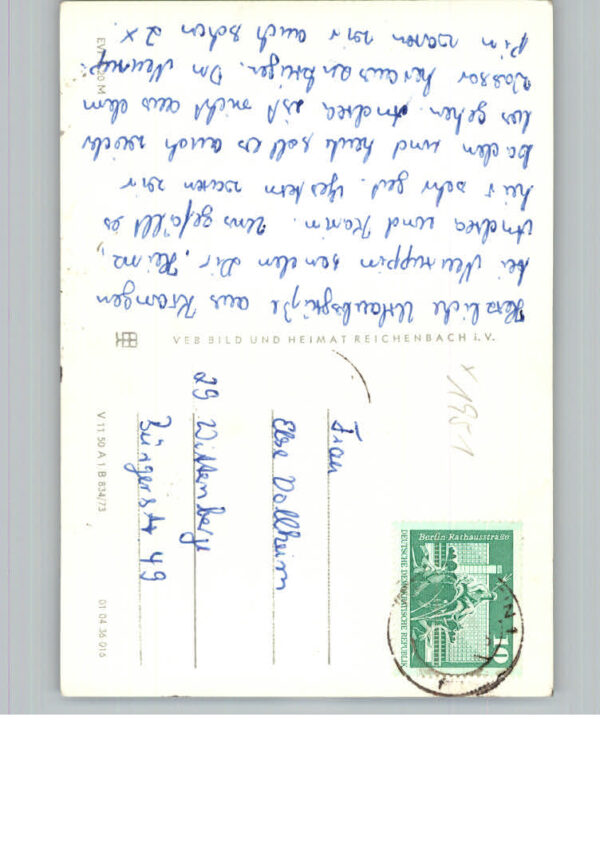 Herzliche Urlaubsgrüße aus Krangen
bei Neuruppin senden Dir, Heinz,
Andrea und Karin. Uns gefällt es
hier sehr gut. Gestern waren wir
baden und heute soll es auch wieder
los gehen. Andrea ist nicht aus dem
Wasser herauszukriegen. In Neurup-
pin waren wir auch schon 2 x
EV 0,20 M
VEB BILD UND HEIMAT REICHENBACH i. V.
V 11 50 A 1 B 834/73
01 04 36 016
Frau
Else Vollheim
29 Wittenberge
Bürgerstr. 49
x 1951
Berlin Rathausstraße
DEUTSCHE DEMOKRATISCHE REPUBLIK
10